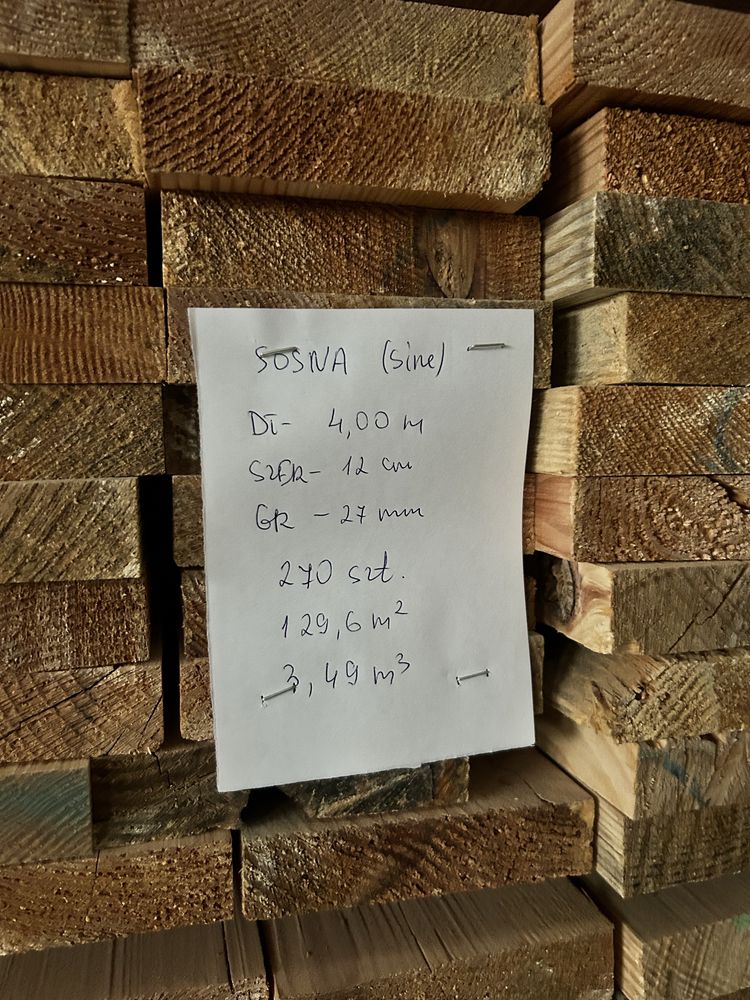 SOSNA (sine)
Dł- 4,00 m
SZER- 12 cm
GR - 27 mm
270 szt.
129,6 m²
3,49 m³